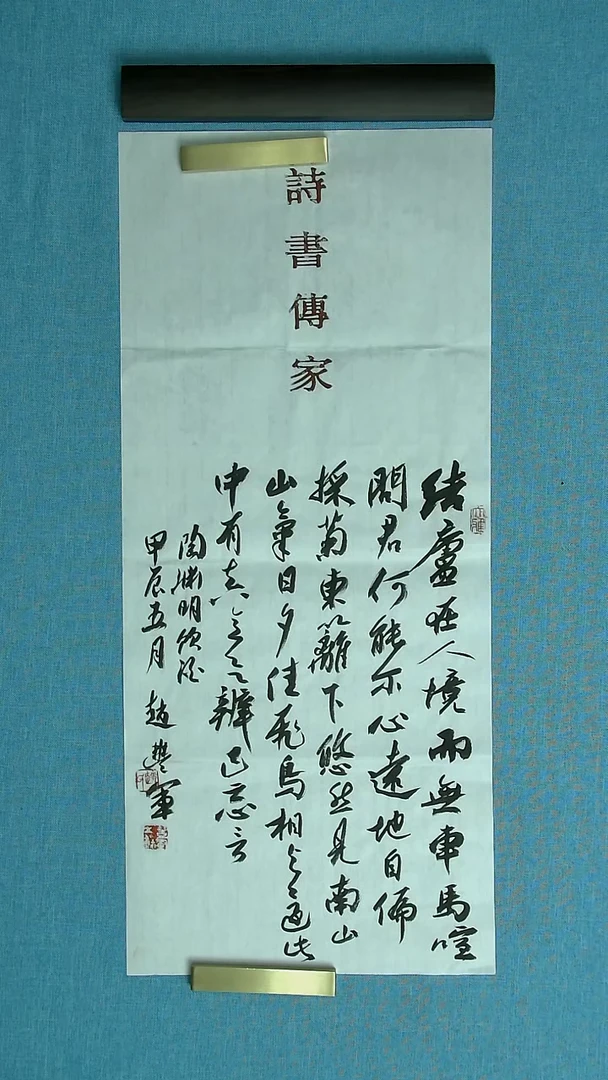 詩書傳家
结廬在人境而無車馬喧
問君何能尔心遠地自偏
採菊東籬下悠然見南山
山氣日夕佳飛鳥相与還此
中有真意欲辨已忘言
陶渊明饮酒
甲辰五月 趙 軍